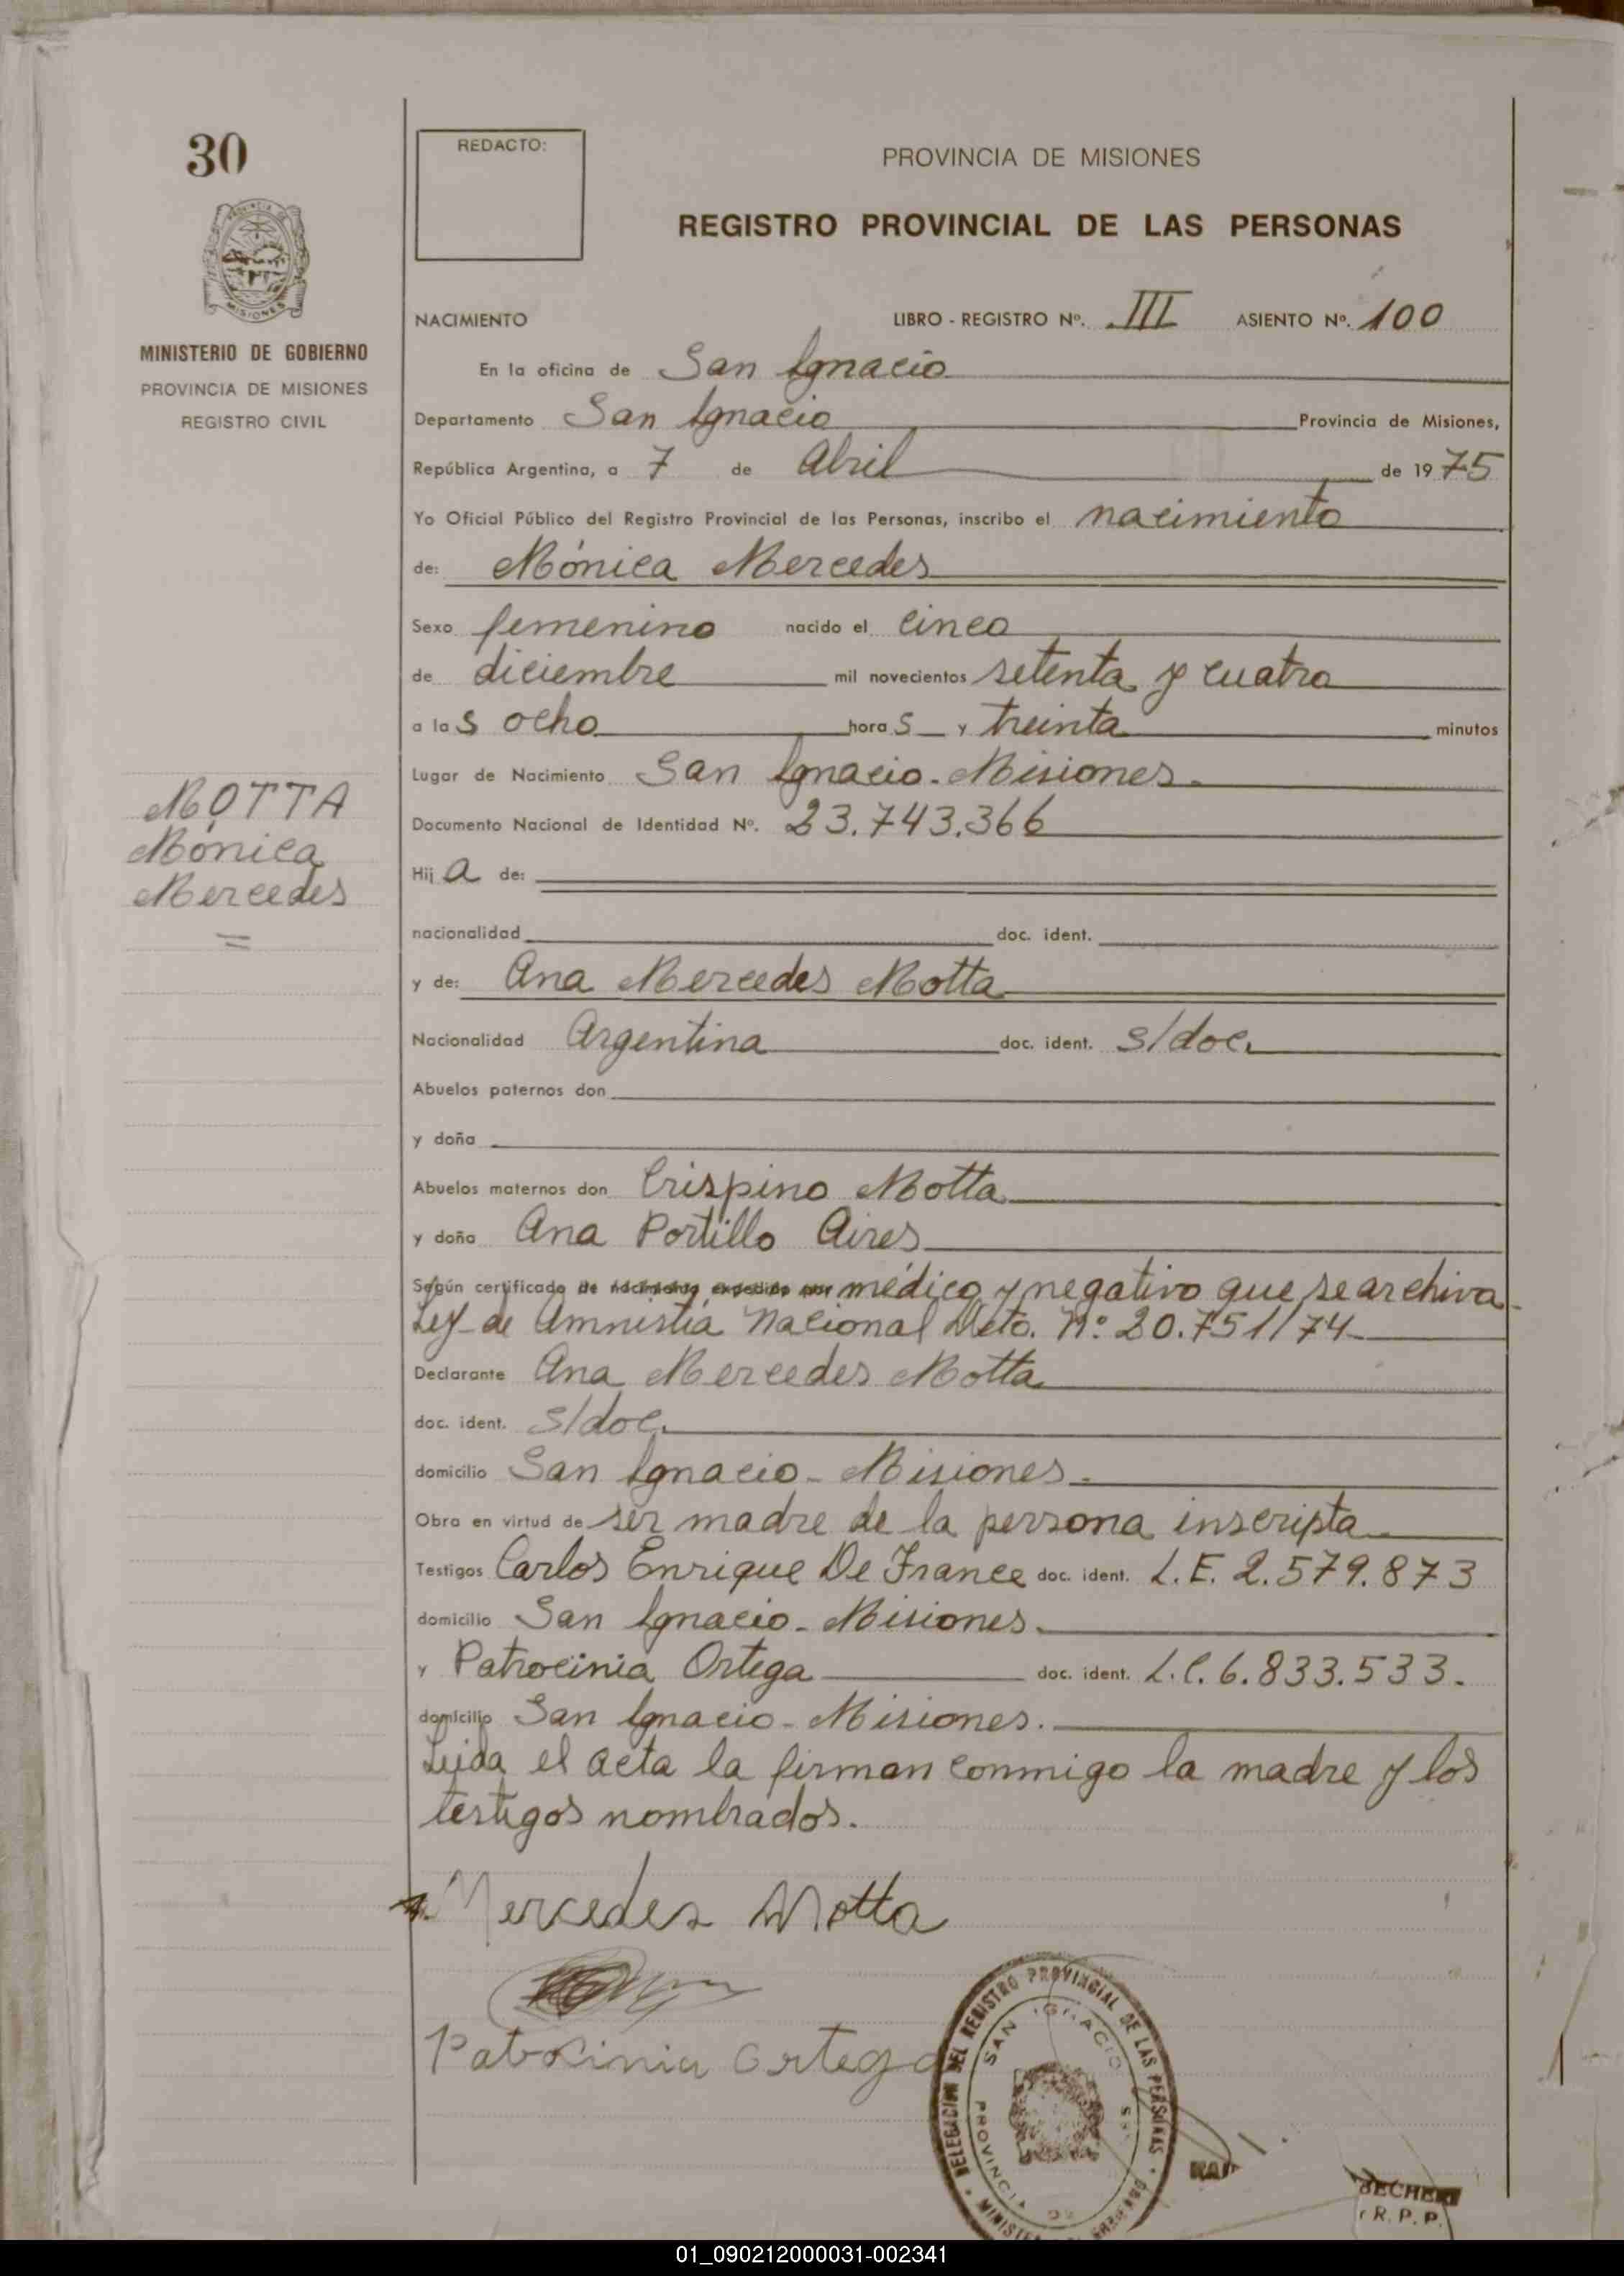 30
REDACTO:
PROVINCIA DE MISIONES
REGISTRO PROVINCIAL DE LAS PERSONAS
MISIONES
MINISTERIO DE GOBIERNO
PROVINCIA DE MISIONES
REGISTRO CIVIL
NACIMIENTO LIBRO - REGISTRO Nº. III ASIENTO Nº. 100
En la oficina de San Ignacio
Departamento San Ignacio Provincia de Misiones,
República Argentina, a 7 de Abril de 1975
Yo Oficial Público del Registro Provincial de las Personas, inscribo el nacimiento
de: Mónica Mercedes
Sexo femenino nacido el cinco
de diciembre mil novecientos setenta y cuatro
a las ocho horas y treinta minutos
Lugar de Nacimiento San Ignacio - Misiones.
Documento Nacional de Identidad Nº. 23.743.366
MOTTA
Mónica
Mercedes
Hija de:
nacionalidad doc. ident.
y de: Ana Mercedes Motta
Nacionalidad Argentina doc. ident. s/doc.
Abuelos paternos don
y doña
Abuelos maternos don Crispino Motta
y doña Ana Portillo Aires
Según certificado de nacimiento expedido por médico y negativo que se archiva
Ley de Amnistía Nacional Dcto. Nº 20.751/74
Declarante Ana Mercedes Motta
doc. ident. s/doc.
domicilio San Ignacio - Misiones.
Obra en virtud de ser madre de la persona inscripta
Testigos Carlos Enrique De France doc. ident. L.E. 2.579.873
domicilio San Ignacio - Misiones.
y Patrocinia Ortega doc. ident. L.C. 6.833.533.
domicilio San Ignacio - Misiones.
Leida el acta la firman conmigo la madre y los
testigos nombrados.
Mercedes Motta
Patrocinia Ortega
DELEGACION DEL REGISTRO PROVINCIAL DE LAS PERSONAS
SAN IGNACIO
PROVINCIA DE
R.P.P.
01_090212000031-002341